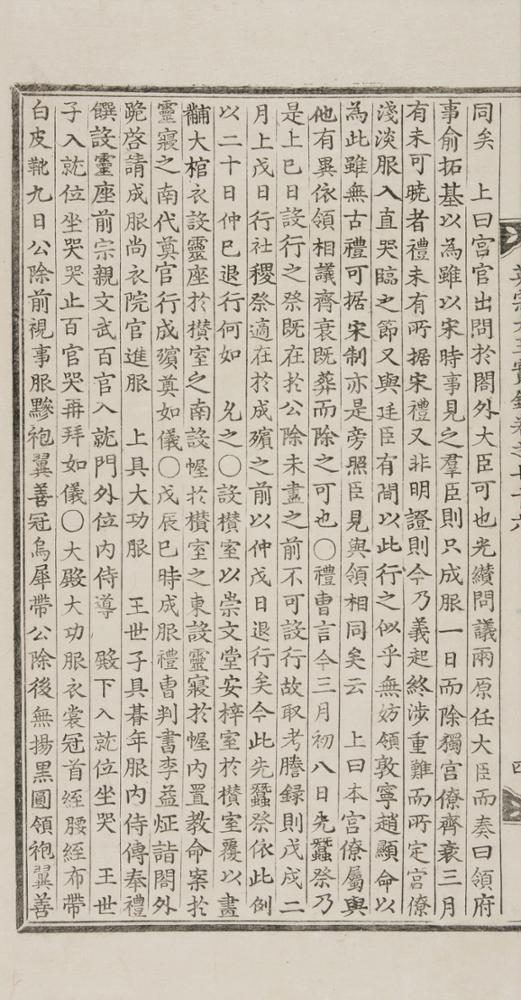 同矣　上曰宮官出問於閤外大臣可也光纉問議兩原任大臣而奏曰領府
事俞拓基以為雖以宋時事見之羣臣則只成服一日而除獨宮僚齊衰三月
有未可曉者禮未有所据宋禮又非明證則今乃義起終涉重難而所定宮僚
淺淡服入直哭臨之節又與廷臣有間以此行之似乎無妨領敦寧趙顯命以
為此雖無古禮可据宋制亦是旁照臣見與領相同矣云　上曰本宮僚屬與
他有異依領相議齊衰既葬而除之可也○禮曹言今三月初八日先蠶祭乃
是上巳日設行之祭既在於公除未盡之前不可設行故取考謄録則戊戍二
月上戊日行社稷祭適在於成殯之前以仲戊日退行矣今此先蠶祭依此例
以二十日仲巳退行何如　允之○設欑室以崇文堂安梓室於欑室覆以畫
黼大棺衣設靈座於欑室之南設幄於欑室之東設靈寢於幄內置教命案於
靈寢之南代奠官行成殯奠如儀○戊辰巳時成服禮曹判書李益炡詣閤外
跪啓請成服尚衣院官進服　上具大功服　王世子具朞年服內侍傳奉禮
饌設靈座前宗親文武百官入就門外位內侍導　殿下入就位坐哭　王世
子入就位坐哭哭止百官哭再拜如儀○大殿大功服衣裳冠首絰腰絰布帶
白皮靴九日公除前視事服黲袍翼善冠烏犀帶公除後無揚黑圓領袍翼善